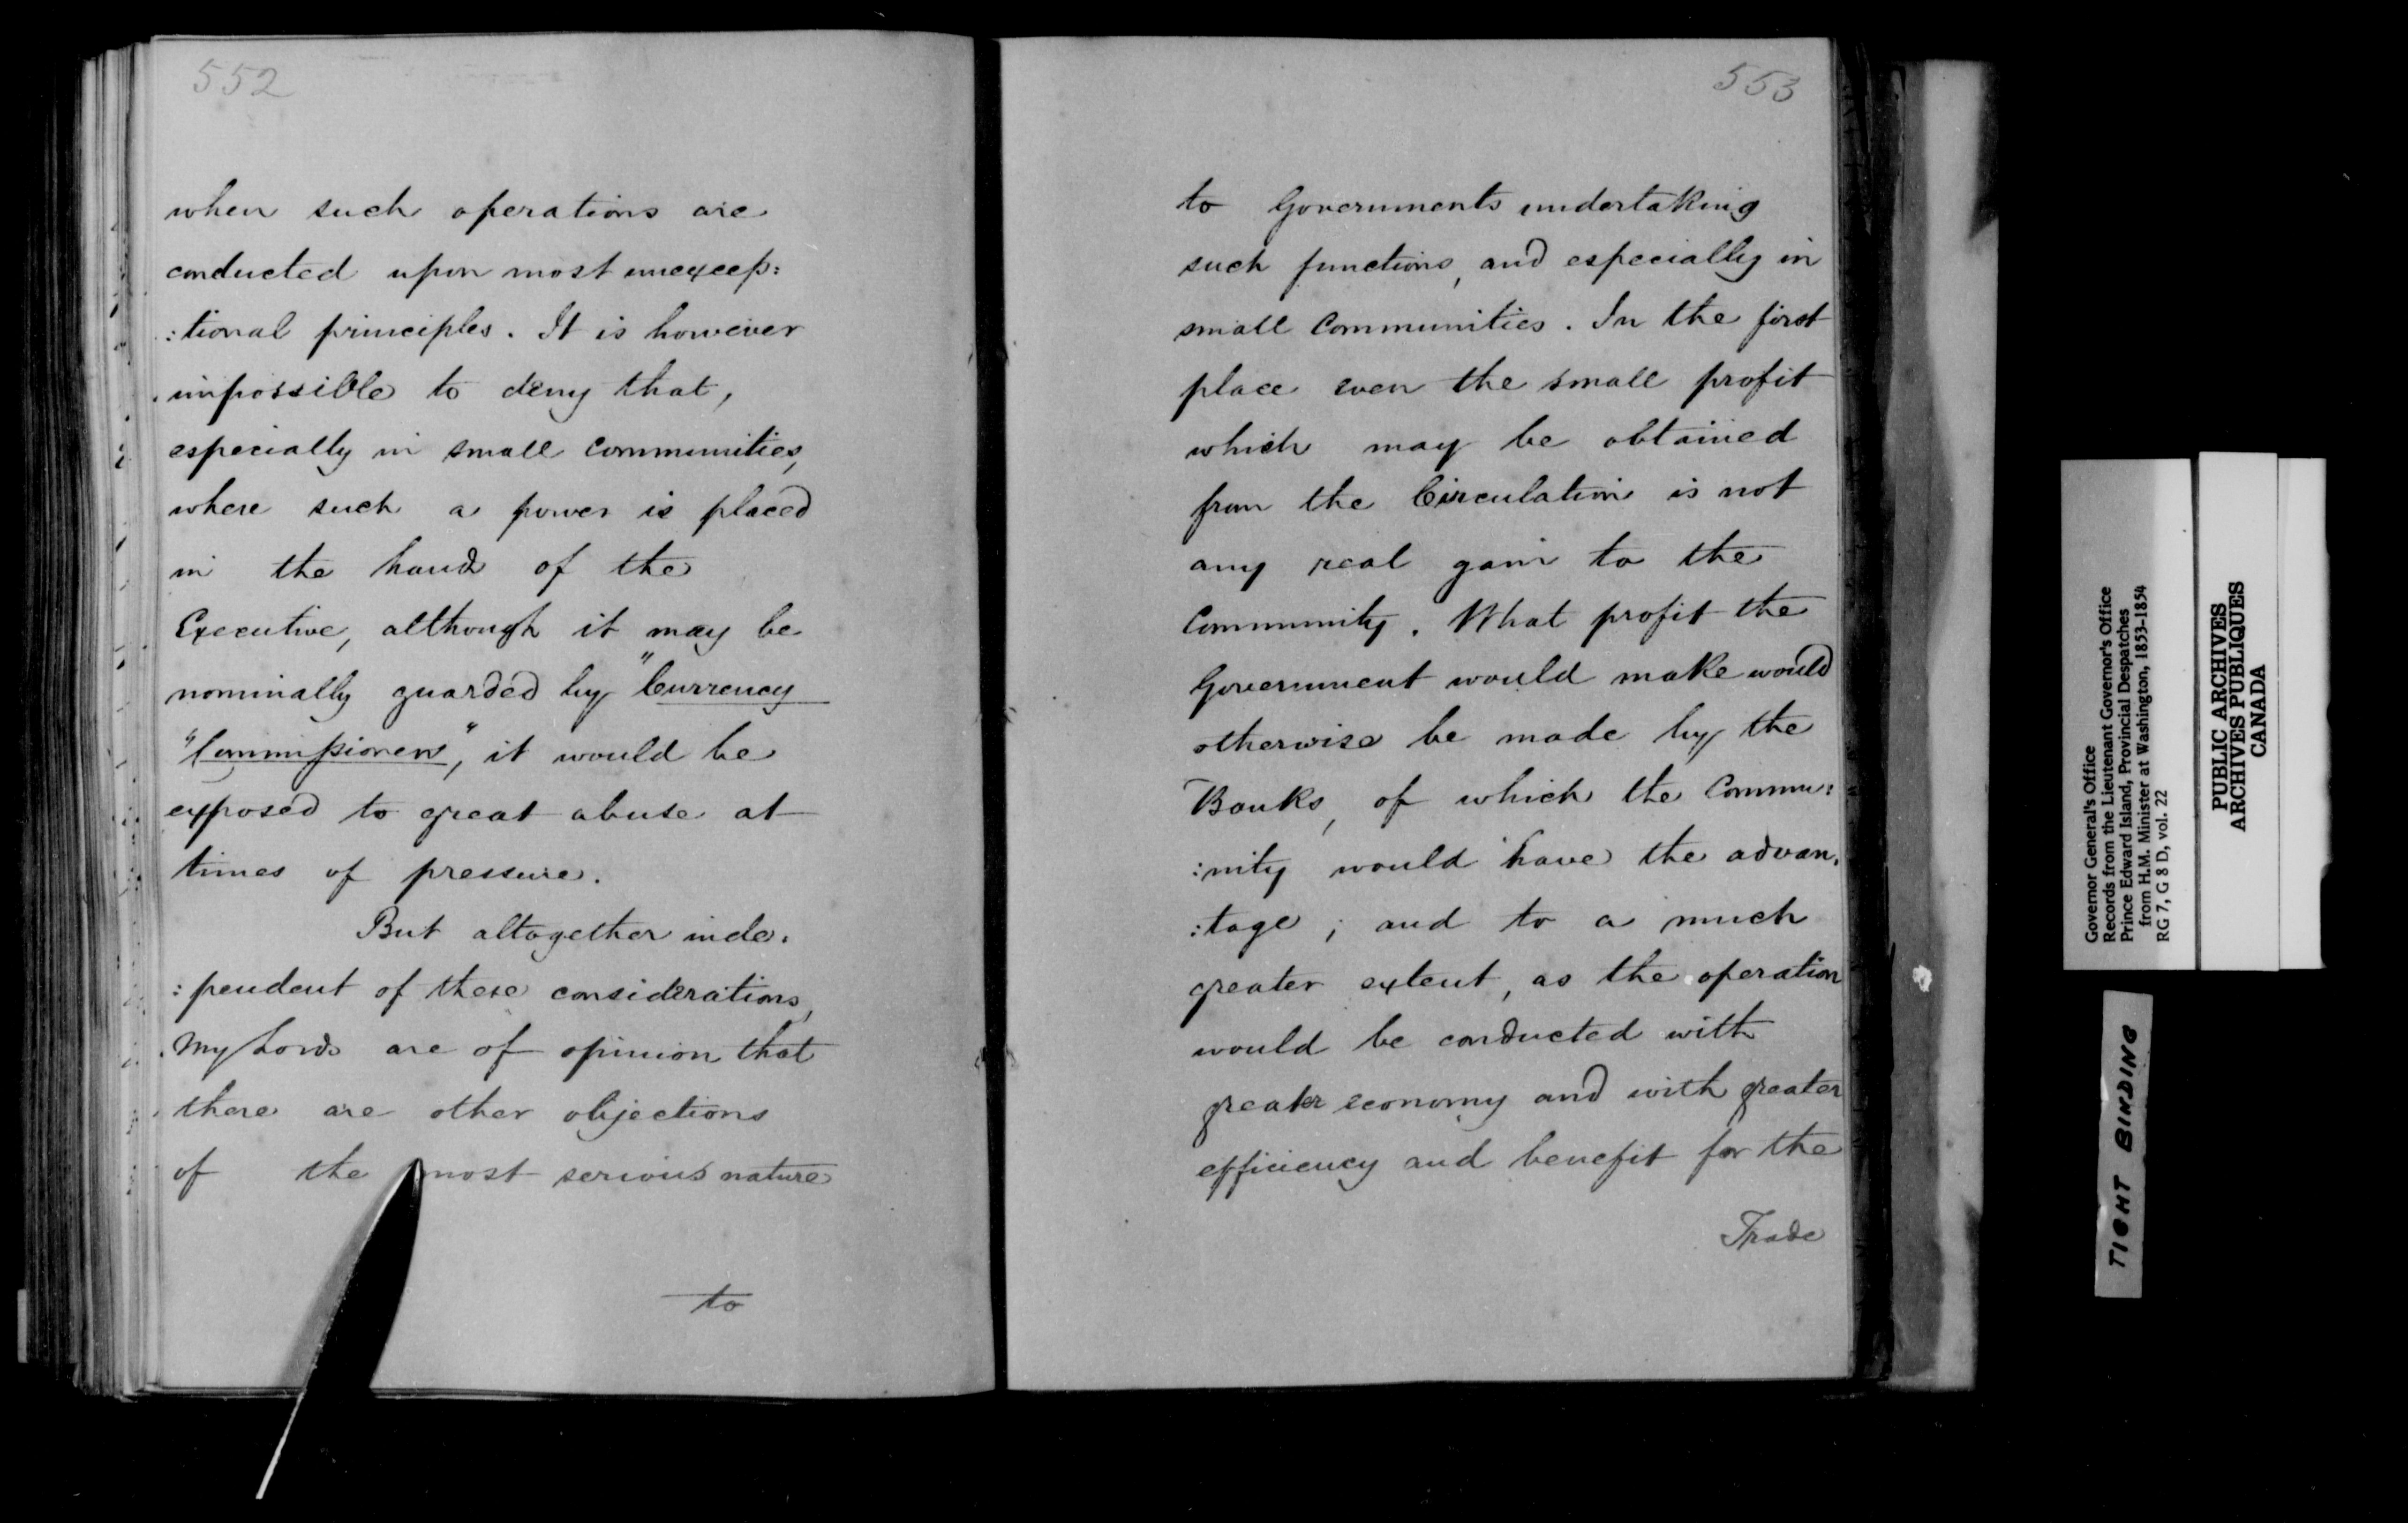 552
when such operations are
conducted upon most unexcep:
:tional principles. It is however
impossible to deny that,
especially in small communities,
where such a power is placed
in the hands of the
Executive, although it may be
nominally guarded by "Currency
"Commissioners", it would be
exposed to great abuse at
times of pressure.
But altogether inde.
:pendent of these considerations,
My Lords are of opinion that
there are other objections
of the most serious nature
to
553
to Governments undertaking
such functions, and especially in
small Communities. In the first
place even the small profit
which may be obtained
from the Circulation is not
any real gain to the
Community. What profit the
Government would make would
otherwise be made by the
Banks, of which the Commu:
:nity would have the advan.
:tage; and to a much
greater extent, as the operation
would be conducted with
greater economy and with greater
efficiency and benefit for the
Trade
Governor General's Office
Records from the Lieutenant Governor's Office
Prince Edward Island, Provincial Despatches
from H.M. Minister at Washington, 1853-1854
RG 7, G 8 D, vol. 22
PUBLIC ARCHIVES
ARCHIVES PUBLIQUES
CANADA
TIGHT BINDING